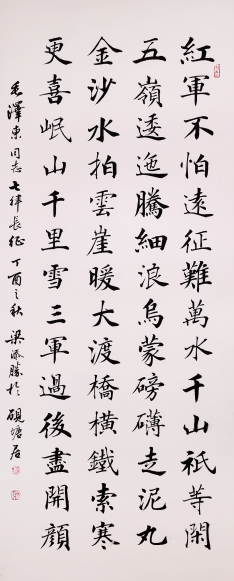 紅軍不怕遠征難萬水千山祇等閑
五嶺逶迤騰細浪烏蒙磅礴走泥丸
金沙水拍雲崖暖大渡橋橫鐵索寒
更喜岷山千里雪三軍過後盡開顏
毛澤東同志七律長征丁酉之秋梁添勝於硯塘居